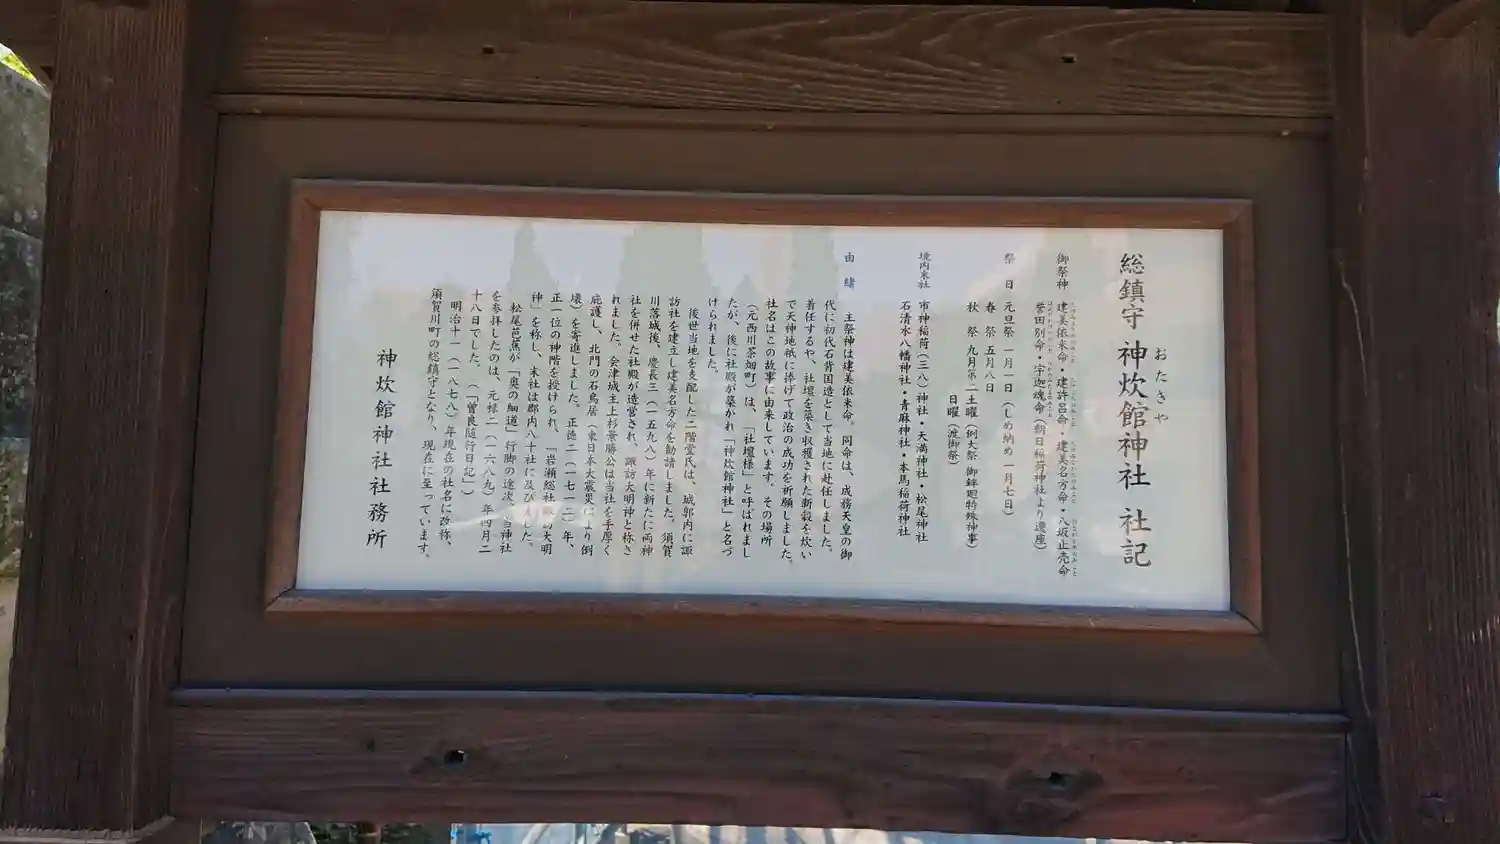 総鎮守 神炊館神社 社記
おたきや
御祭神 建美依米命・建許呂命・建美名方命・八坂止売命
誉田別命・宇迦魂命(朝日稲荷神社より遷座)
祭 日 元旦祭 一月一日(しめ納め 一月七日)
春 祭 五月八日
秋 祭 九月第二土曜(例大祭 御鉾廻特殊神事)
日曜(渡御祭)
境内末社 市神稲荷(三八)神社・天満神社・松尾神社
石清水八幡神社・青麻神社・本馬稲荷神社
由 緒 主祭神は建美依米命。同命は、成務天皇の御
代に初代石背国造として当地に赴任しました。
着任するや、社壇を築き収穫された新穀を炊い
で天神地祇に捧げて政治の成功を祈願しました。
社名はこの故事に由来しています。その場所
(元西川茶畑町)は、「社壇様」と呼ばれまし
たが、後に社殿が築かれ「神炊館神社」と名づ
けられました。
後世当地を支配した二階堂氏は、城郭内に諏
訪社を建立し建美名方命を勧請しました。須賀
川落城後、慶長三(一五九八)年に新たに両神
社を併せた社殿が造営され、諏訪大明神と称さ
れました。会津城主上杉景勝公は当社を手厚く
庇護し、北門の石鳥居(東日本大震災により倒
壊)を寄進しました。正徳二(一七一二)年、
正一位の神階を授けられ、「岩瀬総社 大明
神」を称し、末社は郡内八十社に及びました。
松尾芭蕉が「奥の細道」行脚の途次、当神社
を参拝したのは、元禄二(一六八九)年四月二
十八日でした。(「曽良随行日記」)
明治十一(一八七八)年現在の社名に改称、
須賀川町の総鎮守となり、現在に至っています。
神炊館神社社務所